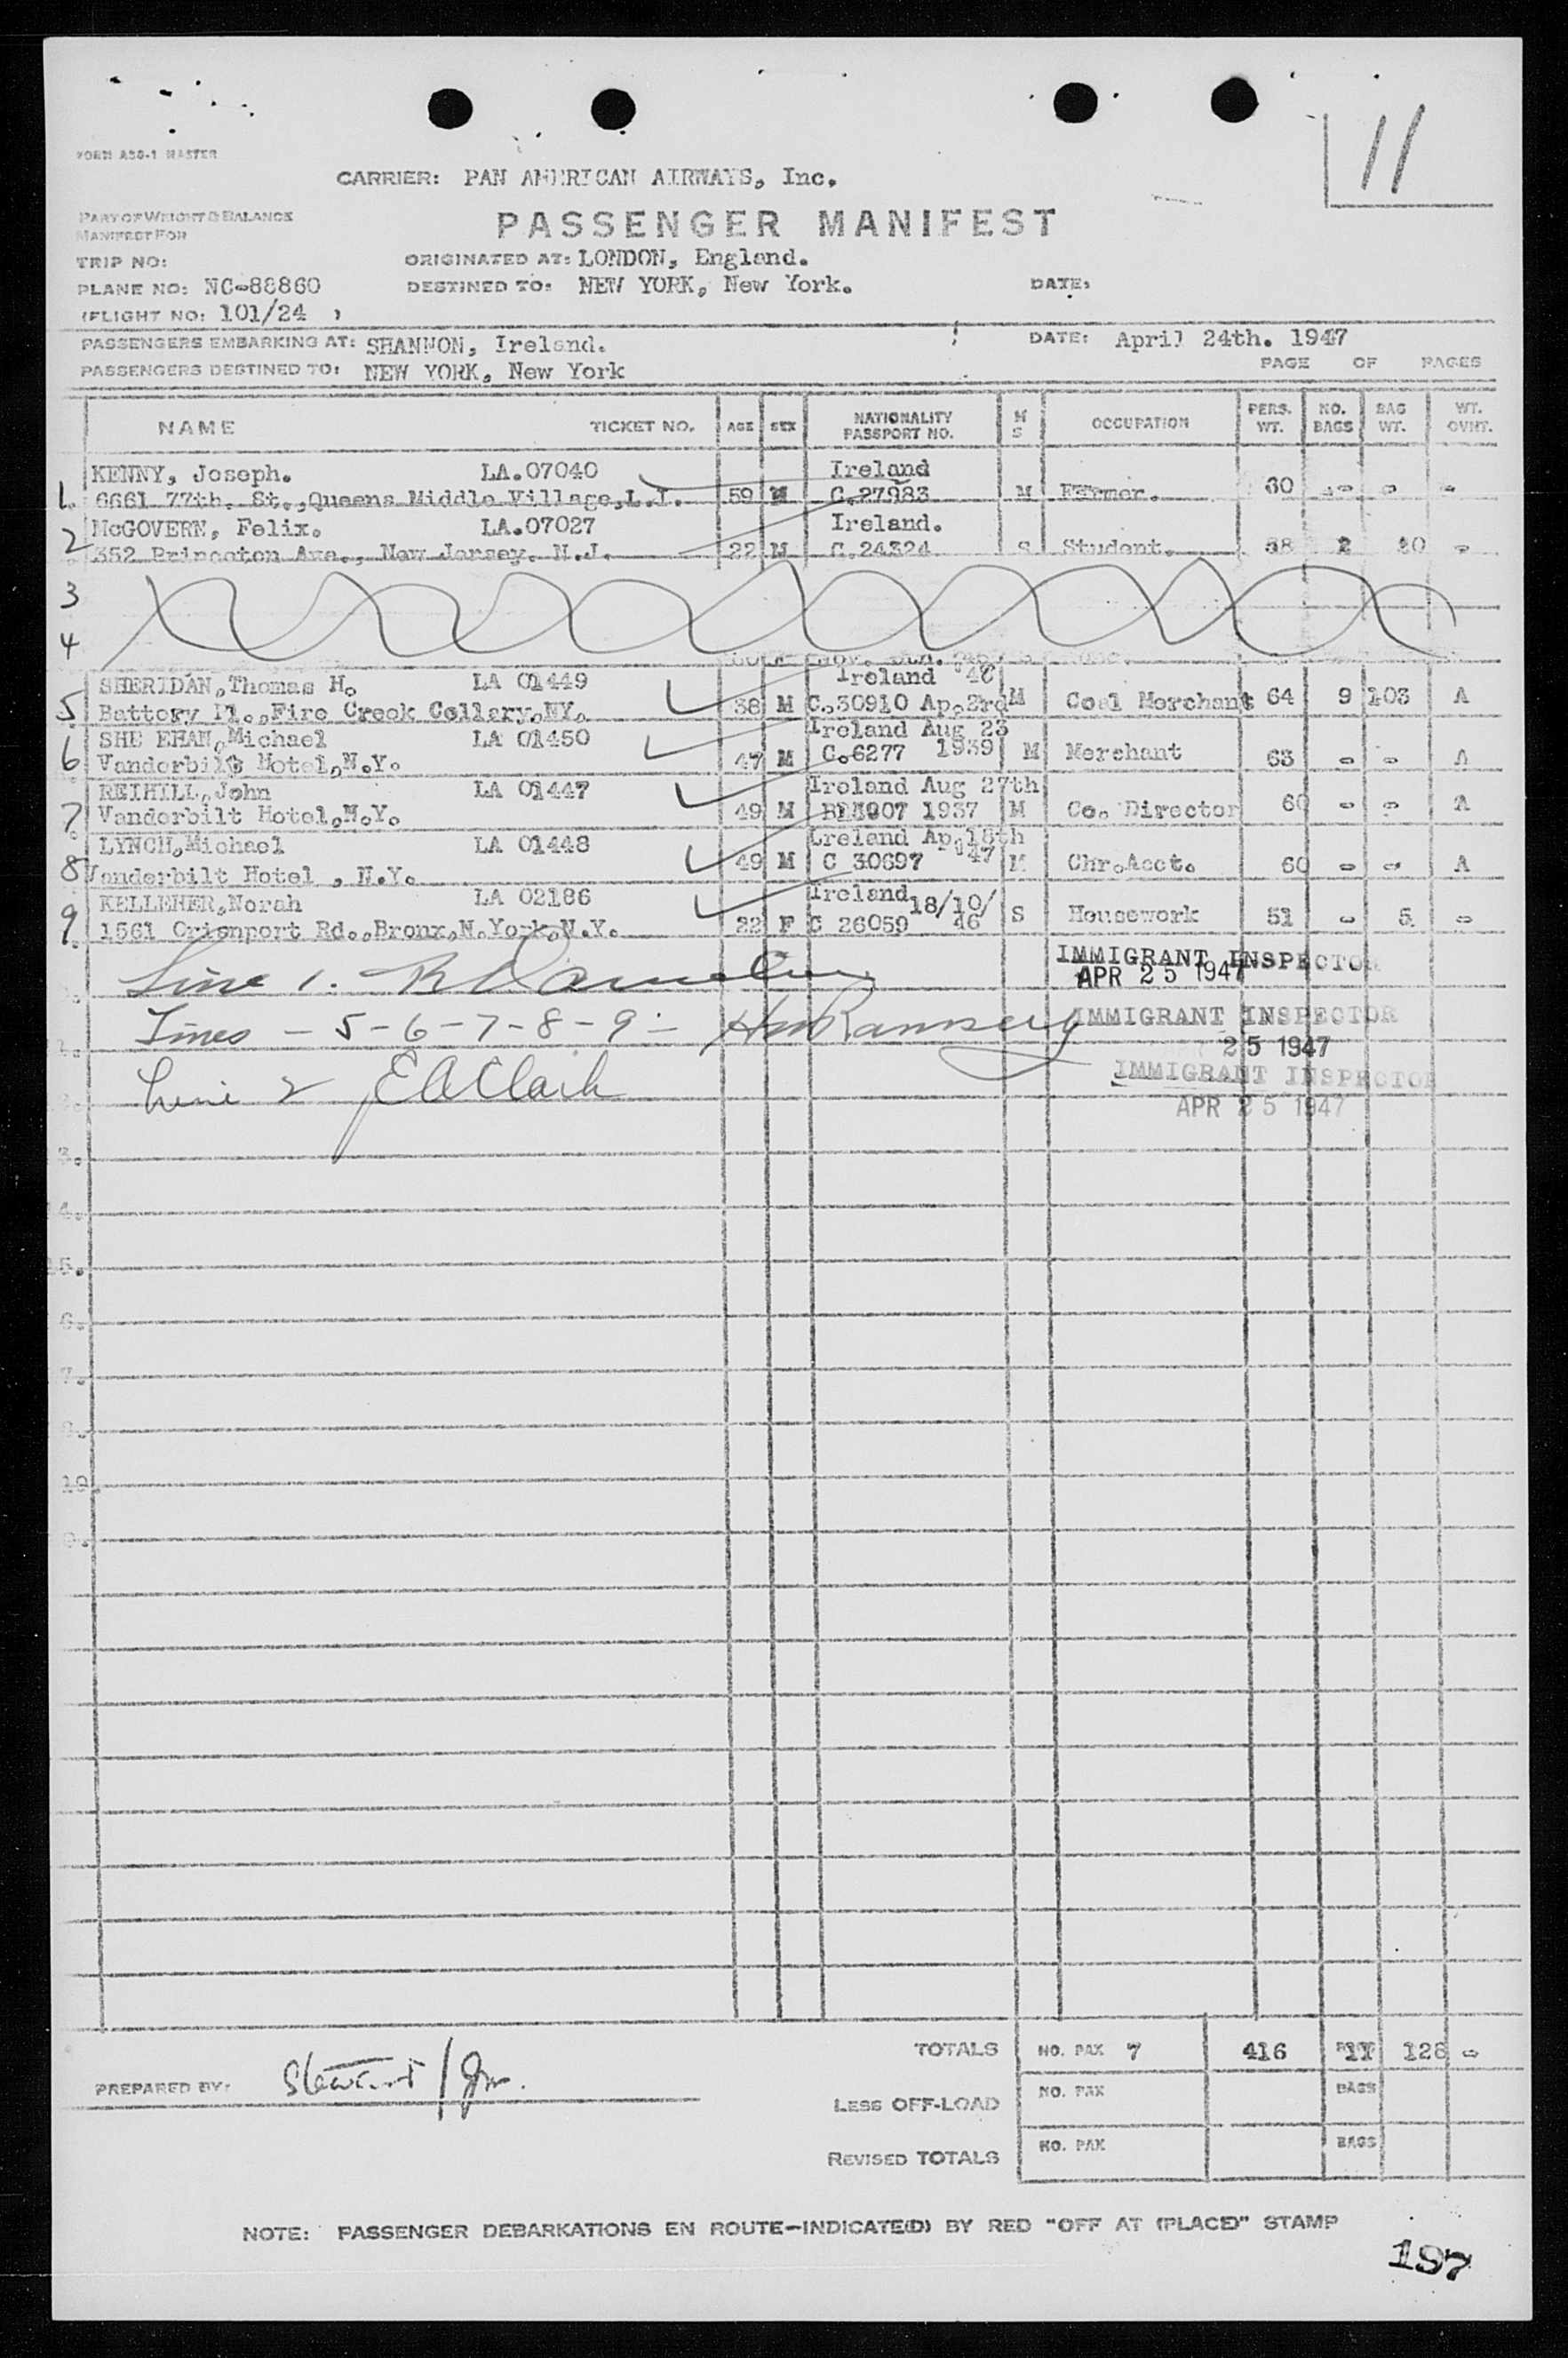 11
FORM ASG-1 MASTER
CARRIER: PAN AMERICAN AIRWAYS, Inc.
PART OF WEIGHT & BALANCE
MANIFEST FOR
PASSENGER MANIFEST
TRIP NO:
ORIGINATED AT: LONDON, England.
PLANE NO: NC-88860
DESTINED TO: NEW YORK, New York.
DATE:
(FLIGHT NO: 101/24 )
PASSENGERS EMBARKING AT: SHANNON, Ireland.
DATE: April 24th. 1947
PASSENGERS DESTINED TO: NEW YORK, New York
PAGE OF PAGES
NAME TICKET NO. AGE SEX NATIONALITY PASSPORT NO. M S OCCUPATION PERS. WT. NO. BAGS BAG WT. WT. OVHT.
KENNY, Joseph. LA.07040 Ireland
1. 6661 77th. St.,Queens Middle Village,L.I. 59 M C.27983 M Farmer. 60 - - -
McGOVERN, Felix. LA.07027 Ireland.
2 352 Princeton Ave., New Jersey. N.J. 22 M C.24324 S Student. 58 2 20 -
3
4
SHERIDAN,Thomas H. LA 01449 Ireland
5 Battery Pl.,Fire Creek Collery,NY. 38 M C.30910 Ap.3rd M Coal Merchant 64 9 103 A
SHE EHAN,Michael LA 01450 Ireland Aug 23
6 Vanderbilt Hotel,N.Y. 47 M C.6277 1939 M Merchant 63 - - A
REIHILL,John LA 01447 Ireland Aug 27th
7 Vanderbilt Hotel,N.Y. 49 M 1937 M Co. Director 60 - - A
LYNCH,Michael LA 01448 Ireland Ap.18th
8 Vanderbilt Hotel , N.Y. 49 M C 30697 '47 M Chr.Acct. 60 - - A
KELLEHER,Norah LA 02186 Ireland 18/10/
9 1561 Orienport Rd.,Bronx,N.York,N.Y. 22 F C 26059 46 S Housework 51 - 5 -
Line 1.
IMMIGRANT INSPECTOR
APR 25 1947
Lines - 5 - 6 - 7 - 8 - 9 - HM Ramsey
IMMIGRANT INSPECTOR
25 1947
Line 2 E A Clark
IMMIGRANT INSPECTOR
APR 25 1947
TOTALS NO. PAX 7 416 11 128 -
PREPARED BY: Stewart
LESS OFF-LOAD NO. PAX BAGS
REVISED TOTALS NO. PAX BAGS
NOTE: PASSENGER DEBARKATIONS EN ROUTE-INDICATE(D) BY RED "OFF AT (PLACE)" STAMP
197